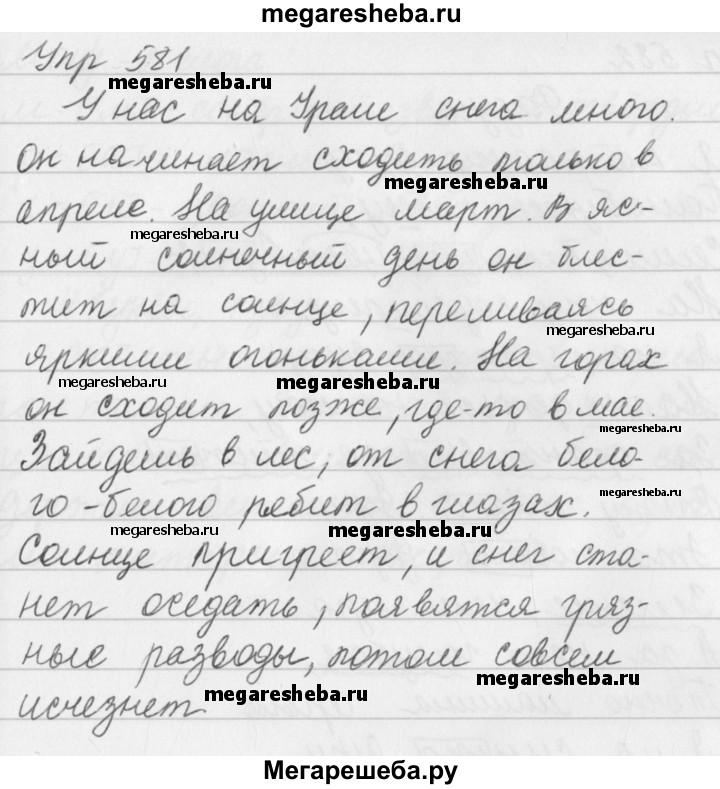 megaresheba.ru
Упр 581
megaresheba.ru
У нас на Урале снега много.
Он начинает сходить только в
megaresheba.ru
апреле. На улице март. В яс-
megaresheba.ru
ный солнечный день он блес-
тит на солнце, переливаясь
megaresheba.ru
яркими огоньками. На горах
megaresheba.ru megaresheba.ru
он сходит позже, где-то в мае.
megaresheba.ru
Зайдешь в лес, от снега бело-
го-белого рябит в глазах.
megaresheba.ru
megaresheba.ru megaresheba.ru
Солнце пригреет, и снег ста-
нет оседать, появятся гряз-
ные разводы, потом совсем
megaresheba.ru
исчезнет
megaresheba.ru
Мегарешеба.ру